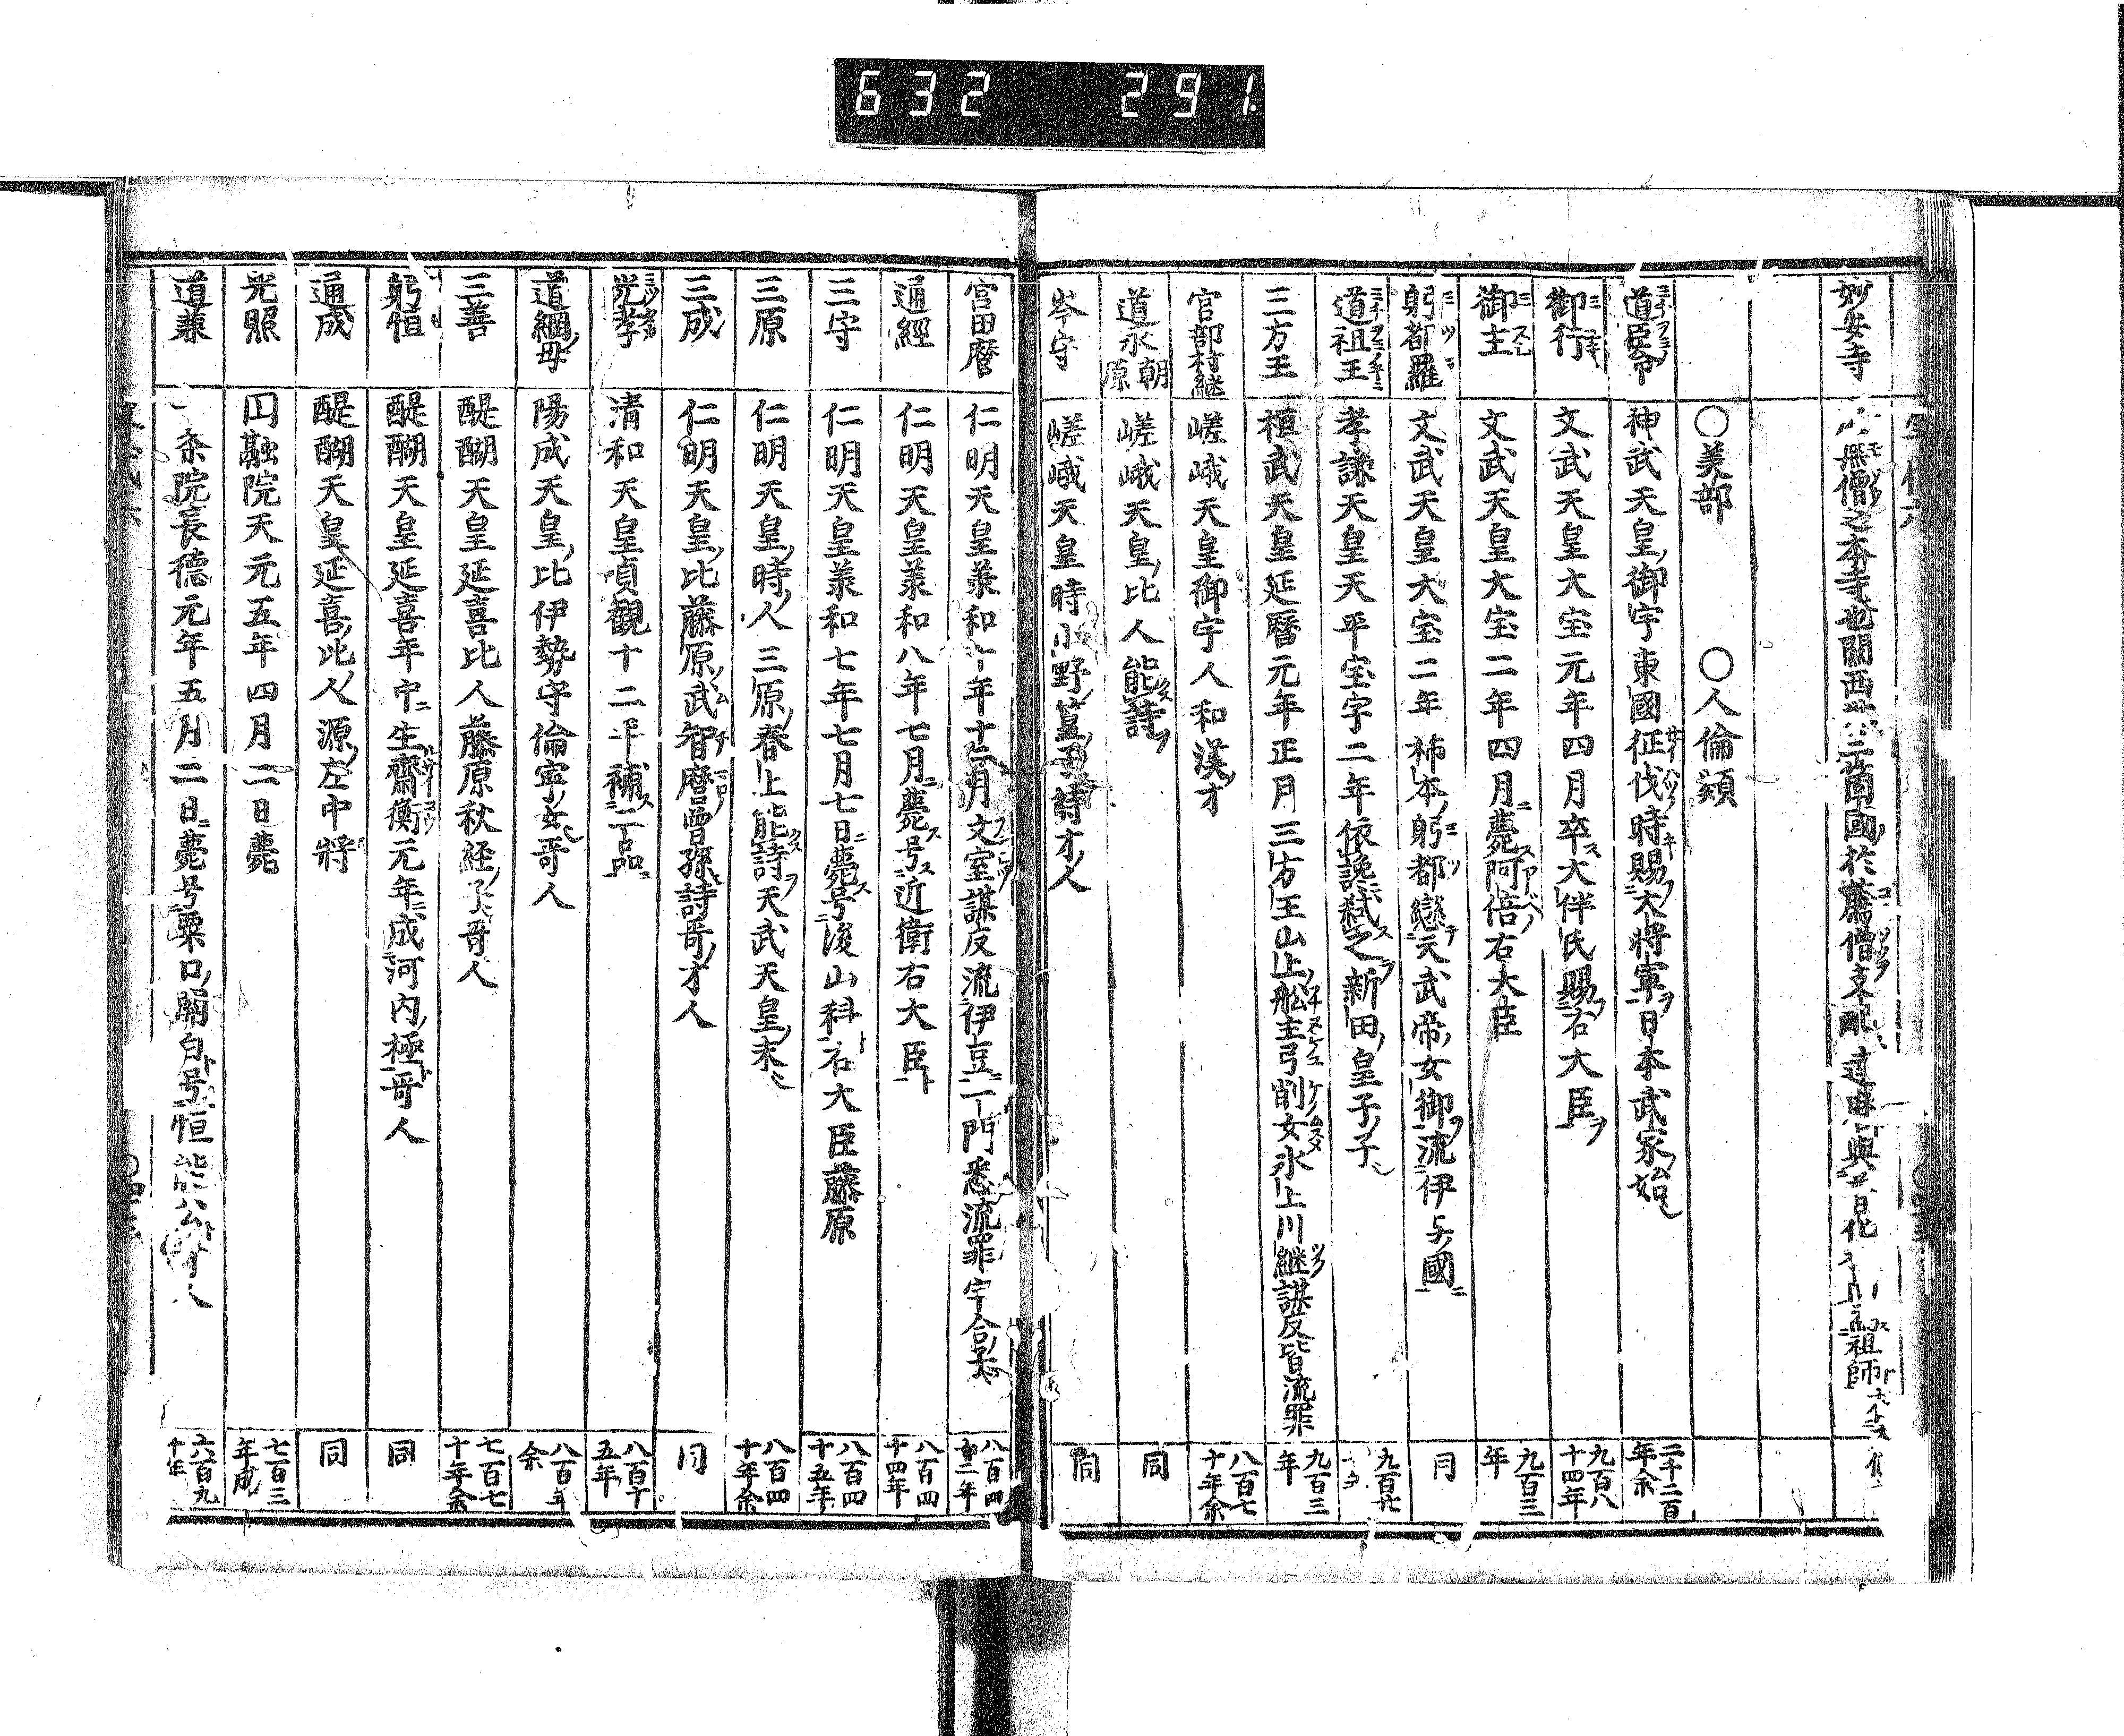 632 291.
妙安寺 無僧之本寺也關西三箇國於薦僧支配 祖師
○美部 ○人倫類
道臣命 神武天皇御宇東國征伐時賜大將軍日本武家始 二千二百年余
御行 文武天皇大宝元年四月卒大伴氏賜右大臣 九百八十四年
御主 文武天皇大宝二年四月薨阿倍右大臣 九百三年
躬都羅 文武天皇大宝二年柿本躬都戀天武帝女御流伊与國 同
道祖王 孝謙天皇天平宝字二年依讒弑之新田皇子子 九百廿
三方王 桓武天皇延暦元年正月三方王山上舩主弓削女氷上川継謀反皆流罪 九百三年
宮部村継 嵯峨天皇御宇人和漢才 八百七十年余
道永朝原 嵯峨天皇比人能詩 同
岑守 嵯峨天皇時小野篁子詩才人 同
宮田麿 仁明天皇羕和十年十二月文室謀反流伊豆一門悉流罪宇合末 八百四十二年
通經 仁明天皇羕和八年七月薨号近衛右大臣 八百四十四年
三守 仁明天皇羕和七年七月七日薨号後山科右大臣藤原 八百四十五年
三原 仁明天皇時人三原春上能詩天武天皇末 八百四十年余
三成 仁明天皇比藤原武智麿曾孫詩哥才人 同
光孝 清和天皇貞観十二年補二品 八百十五年
道綱母 陽成天皇比伊勢守倫寧女哥人 八百年余
三善 醍醐天皇延喜比人藤原秋経子哥人 七百七十年余
躬恒 醍醐天皇延喜年中生齋衡元年成河内極哥人 同
通成 醍醐天皇延喜比人源左中將 同
光照 円融院天元五年四月二日薨 七百三年
道兼 条院長德元年五月二日薨号粟口關白号恒能公哥人 六百九十年